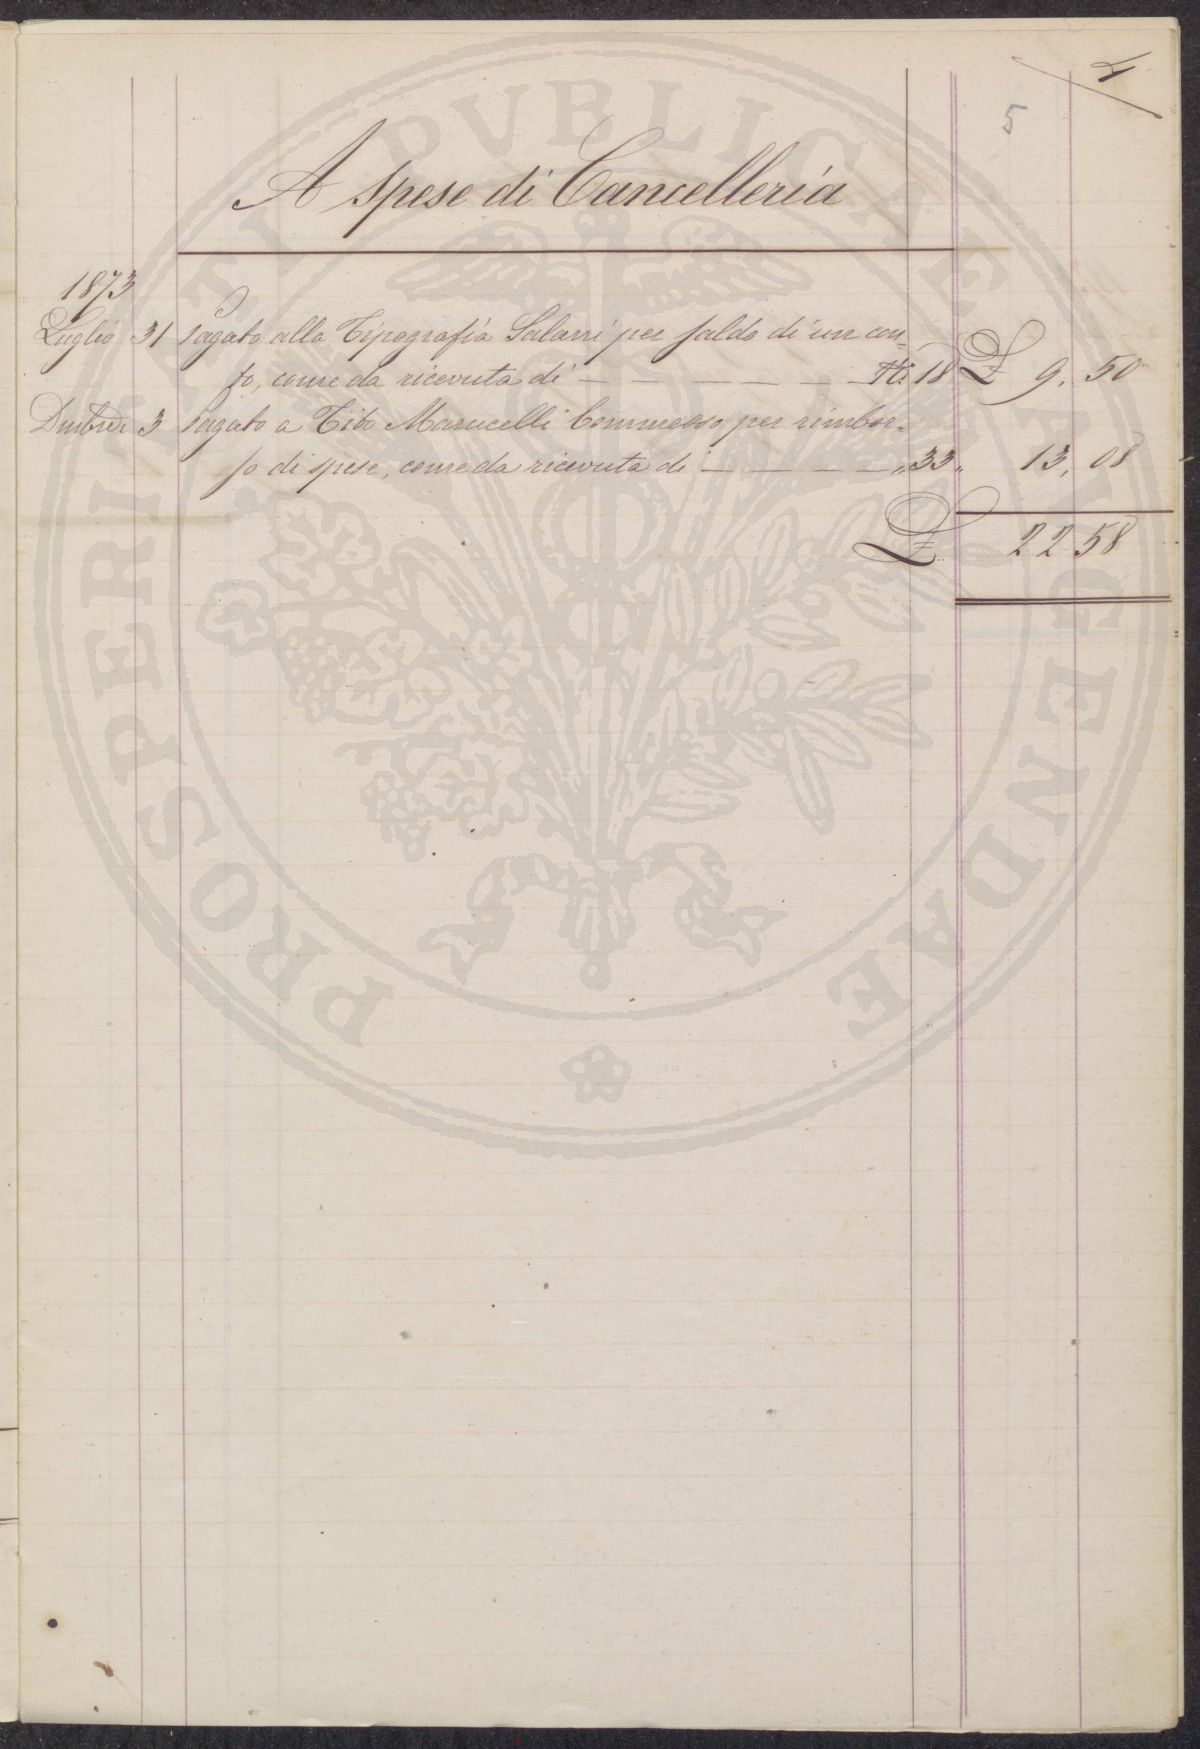 4
5
A spese di Cancelleria
1873
Luglio 31 Pagato alla Tipografia Salani per saldo di un con=
to, come da ricevuta di — — — — — — № 18 £ 9. 50
Dmbre 3 Pagato a Tito Marucelli Commesso, per rimbor=
so di spese, come da ricevuta di — — — — „ 33 „ 13. 08
£ 22 58
PROSPERITATI PVBLICAE AVGENDAE